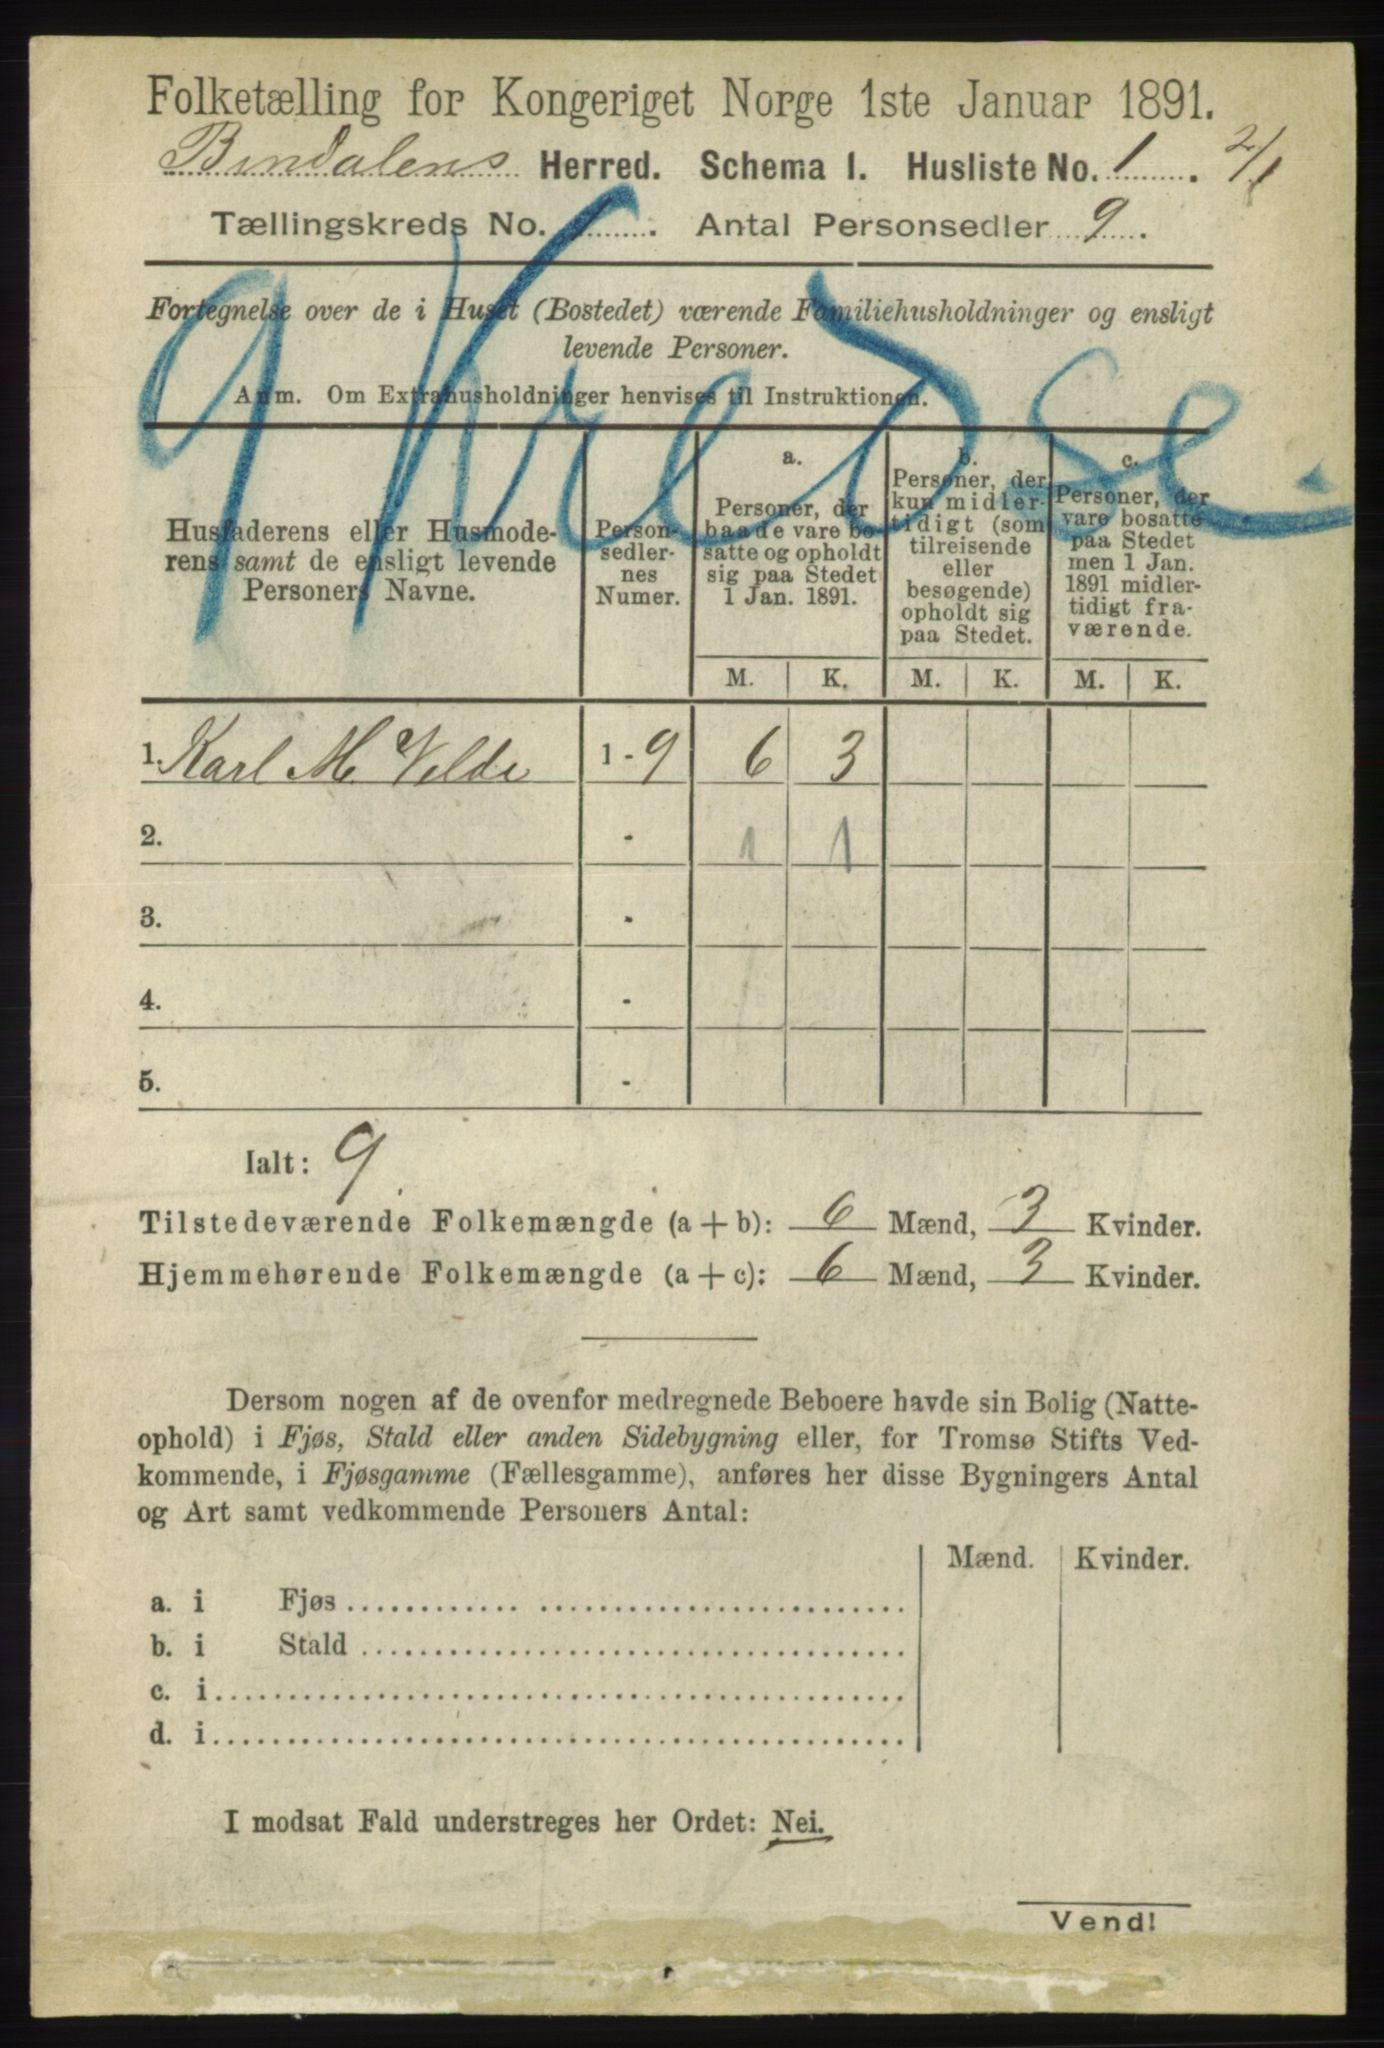 Folketælling for Kongeriget Norge 1ste Januar 1891.
Bindalens Herred. Schema I. Husliste No. 1. 2/1
Tællingskreds No. 1. Antal Personsedler 9.
Fortegnelse over de i Huset (Bostedet) værende Familiehusholdninger og ensligt
levende Personer.
Anm. Om Extrahusholdninger henvises til Instruktionen.
Husfaderens eller Husmode-
rens samt de ensligt levende
Personers Navne.
Person-
sedler-
nes
Numer.
a.
Personer, der
baade vare bo-
satte og opholdt
sig paa Stedet
1 Jan. 1891.
b.
Personer, der
kun midler-
tidigt (som
tilreisende
eller
besøgende)
opholdt sig
paa Stedet.
c.
Personer, der
vare bosatte
paa Stedet
men 1 Jan.
1891 midler-
tidigt fra-
værende.
M. K. M. K. M. K.
1. Karl M. Velde 1 - 9 6 3
2. - 1 1
3. -
4. -
5. -
Ialt: 9
Tilstedeværende Folkemængde (a + b): 6 Mænd, 3 Kvinder.
Hjemmehørende Folkemængde (a + c): 6 Mænd, 3 Kvinder.
Dersom nogen af de ovenfor medregnede Beboere havde sin Bolig (Natte-
ophold) i Fjøs, Stald eller anden Sidebygning eller, for Tromsø Stifts Ved-
kommende, i Fjøsgamme (Fællesgamme), anføres her disse Bygningers Antal
og Art samt vedkommende Personers Antal:
Mænd. Kvinder.
a. i Fjøs
b. i Stald
c. i
d. i
I modsat Fald understreges her Ordet: Nei.
Vend!